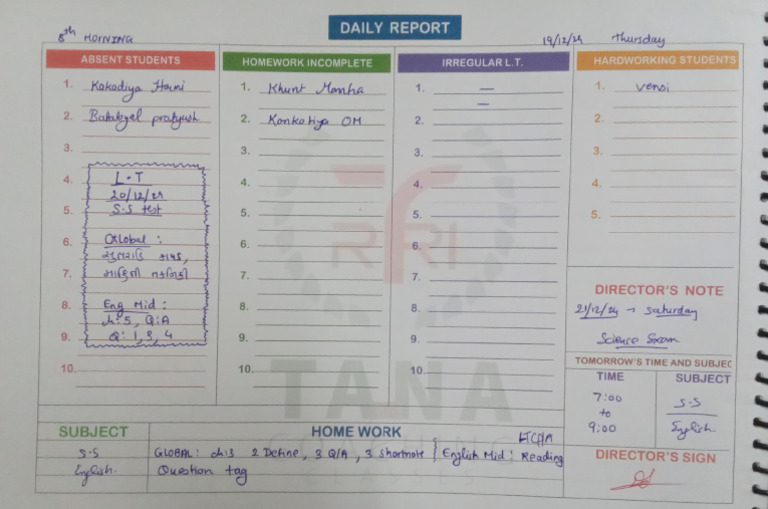 DAILY REPORT
8th MORNING
19/12/24 Thursday
ABSENT STUDENTS
1. Kakadiya Hani
2. pratyush
3.
4.
5.
6.
7.
8.
9.
10.
L.T
20/12/24
S.S test
Global:
Eng Mid:
ch:5, Q:A
Q: 1, 3, 4
HOMEWORK INCOMPLETE
1. Khunt
2. OM
3.
4.
5.
6.
7.
8.
9.
10.
IRREGULAR L.T.
1. —
—
2.
3.
4.
5.
6.
7.
8.
9.
10.
HARDWORKING STUDENTS
1.
2.
3.
4.
5.
DIRECTOR'S NOTE
21/12/24 → Saturday
Science Exam
TOMORROW'S TIME AND SUBJEC
TIME SUBJECT
7:00 S.S
to
9:00 English
DIRECTOR'S SIGN
SUBJECT HOME WORK
S.S GLOBAL: ch:3 2 Define, 3 Q/A, 3 shortnote } English Mid: Reading
English. Question tag
RFRI
TANA